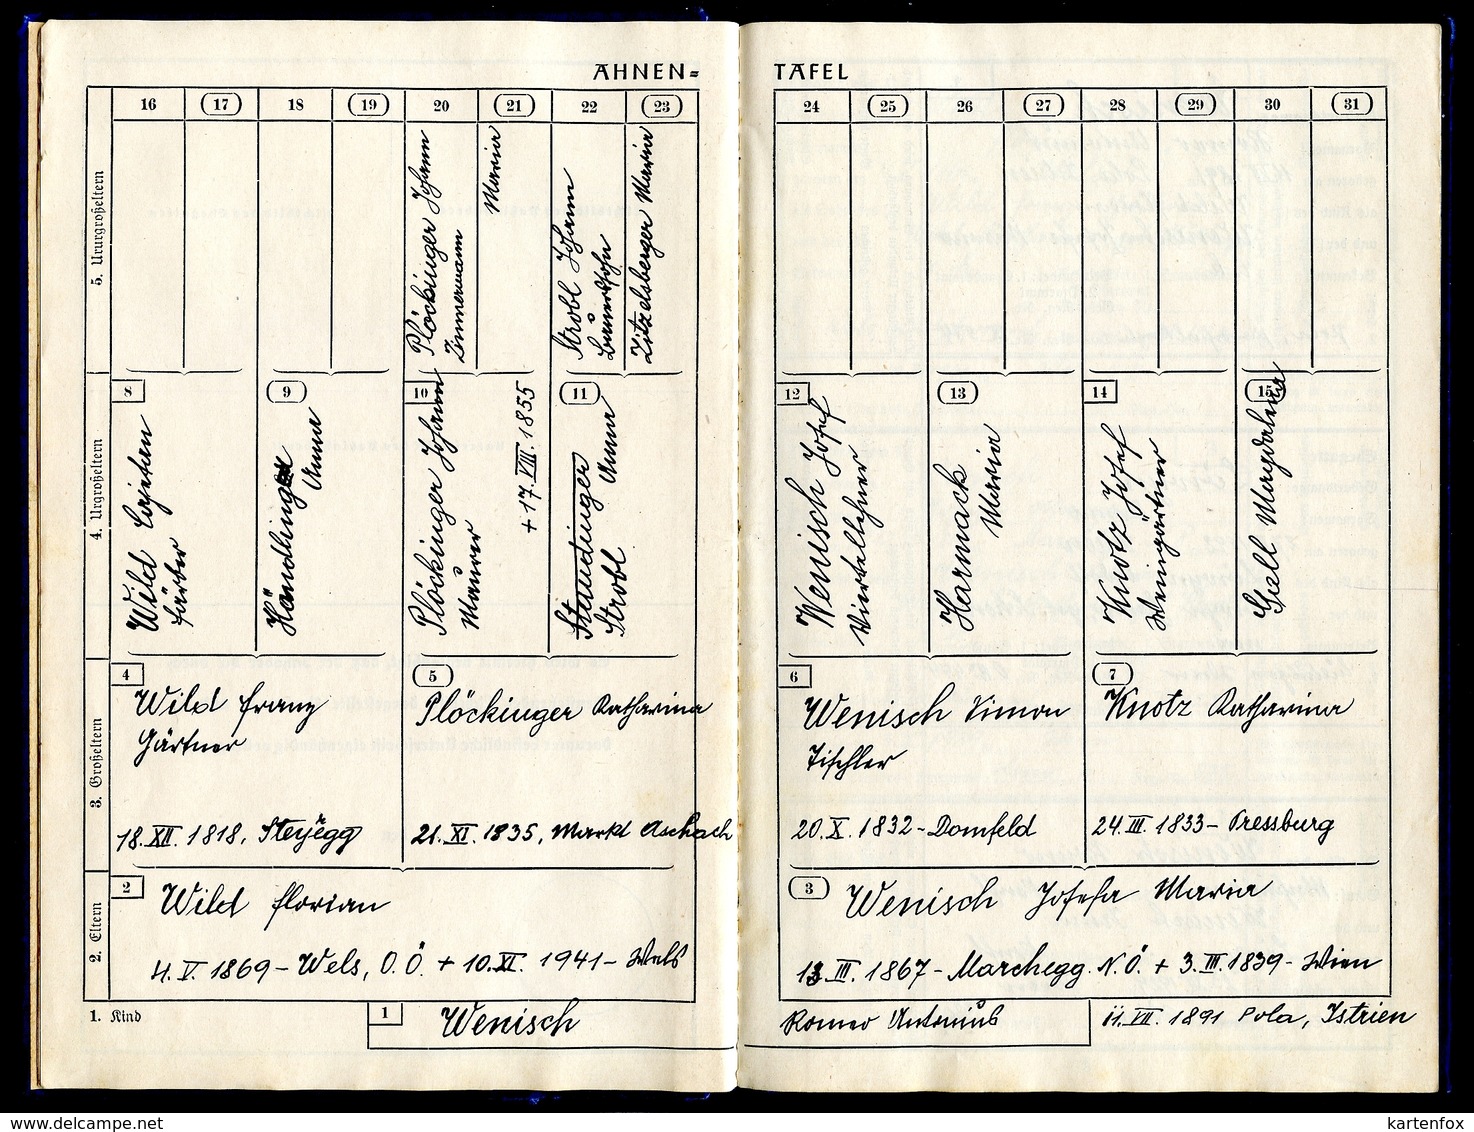 AHNEN=
TAFEL
16 17 18 19 20 21 22 23
24 25 26 27 28 29 30 31
5. Ururgroßeltern
Plöckinger Johann
Zimmermann
Maria
Strobl Johann
Bauerssohn
Litzelsberger Maria
4. Urgroßeltern
8
Wild Cajetan
Färber
9
Händlinger
Anna
10
Plöckinger Johann
Maurer
+ 17. VIII. 1855
11
Staudinger
Anna
Strobl
12
Wenisch Josef
Viertellehner
13
Harmack
Maria
14
Knotz Josef
Weingärtner
15
Gsell Magdalena
3. Großeltern
4
Wild Franz
Gärtner
18. XII. 1818, Steyregg
5
Plöckinger Katharina
21. XI. 1835, Markt Aschach
6
Wenisch Simon
Tischler
20. X. 1832 - Dornfeld
7
Knotz Katharina
24. III. 1833 - Pressburg
2. Eltern
2
Wild Florian
4. V. 1869 - Wels, O.Ö. + 10. XI. 1941 - Wels
3
Wenisch Josefa Maria
13. III. 1867 - Marchegg. N.Ö. + 3. III. 1839 - Wien
1. Kind
1
Wenisch
Romeo Antonius
11. VII. 1891 Pola, Istrien
www.delcampe.net
kartenfox